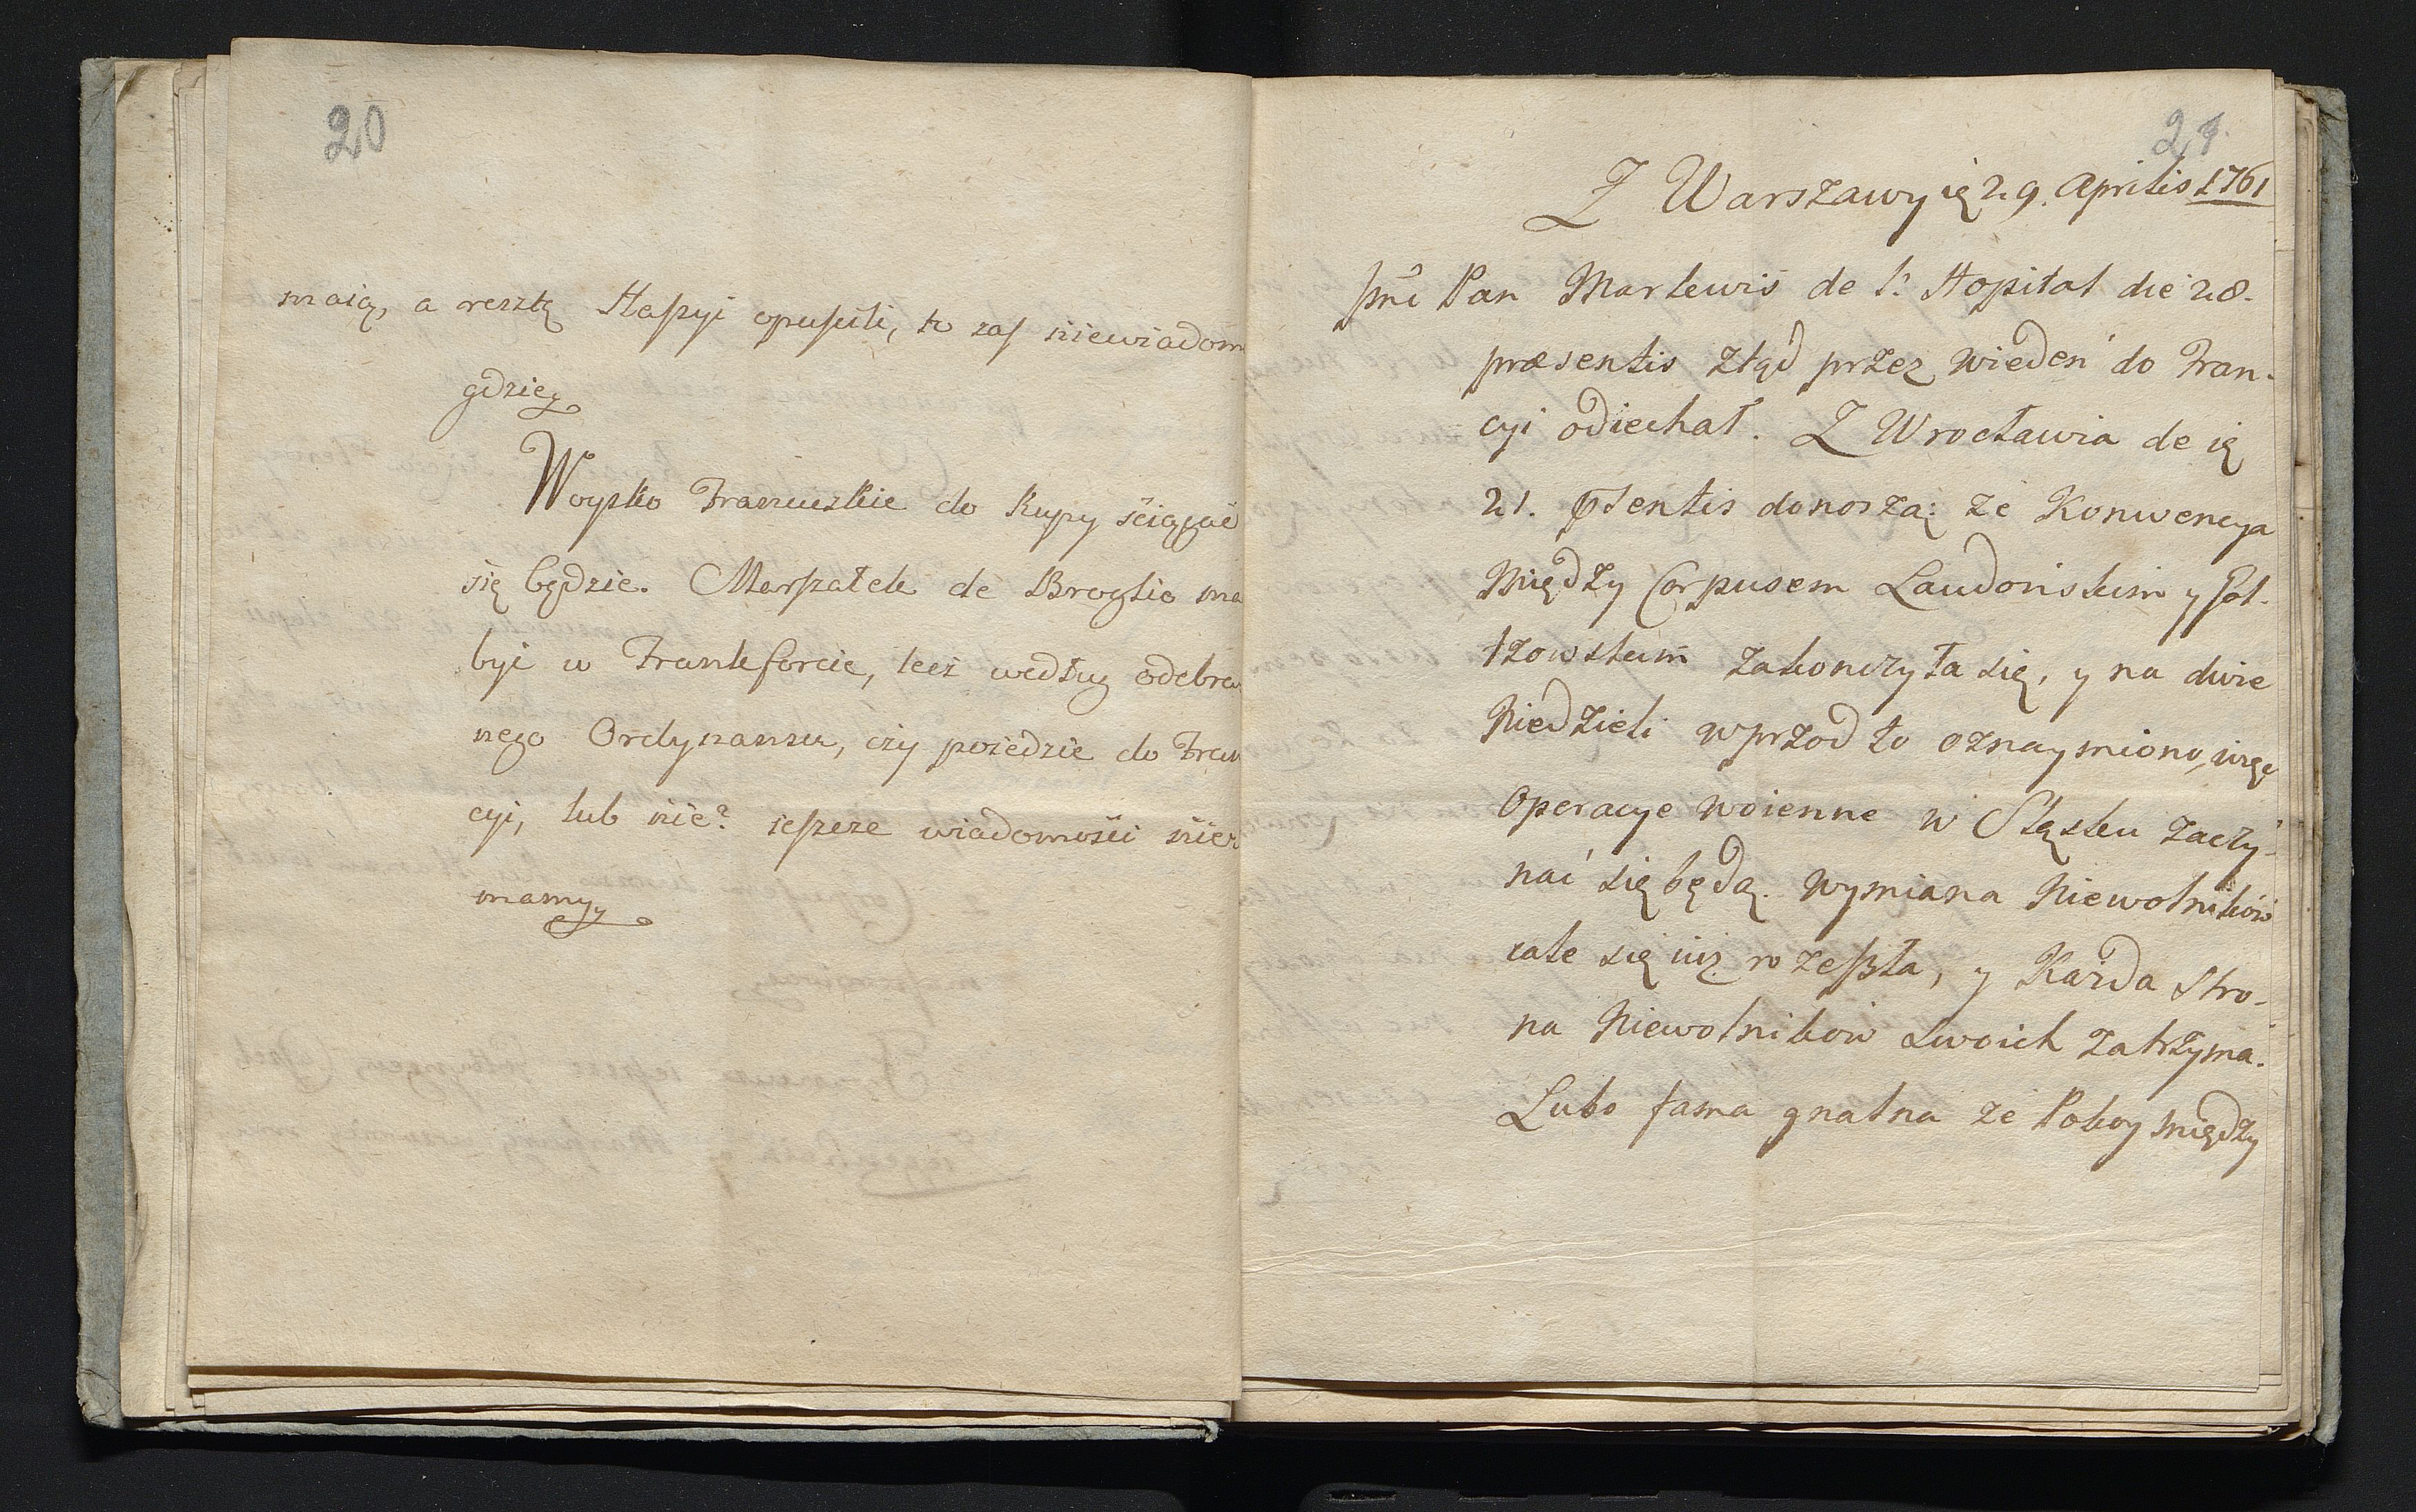 20
maią, a resztę Hassyi opuścili, to zaś niewiadom
gdzie
Woysko Francuzkie do Kupy ściągać
się będzie. Marszałek de Broglio ma
byc w Frankforcie, lecz według odebra
nego Ordynansu, czy poiedzie do Fran
cyi, lub nie? ieszcze wiadomości nie
mamy
21.
Z Warszawy ię 29. Aprilis 1761
Pan Markewis de l' Hopital die 28.
præsentis ztąd przez wieden do Fran-
cyi odiechał. Z Wrocławia de ię
21. donoszą: że Konwencya
Między Corpusem Laudonskim y Gol-
tzowskim zakonczyła się, y na dwie
Niedzieli wprzod to oznaymiono, więc
Operacye woienne w Sląsku zaczy-
nać się będą. wymiana Niewolników
cale się iuż rozeszła, y Każda stro-
na Niewolnikow swoich zatrzyma.
Lubo fama gnatna że Pokoy między